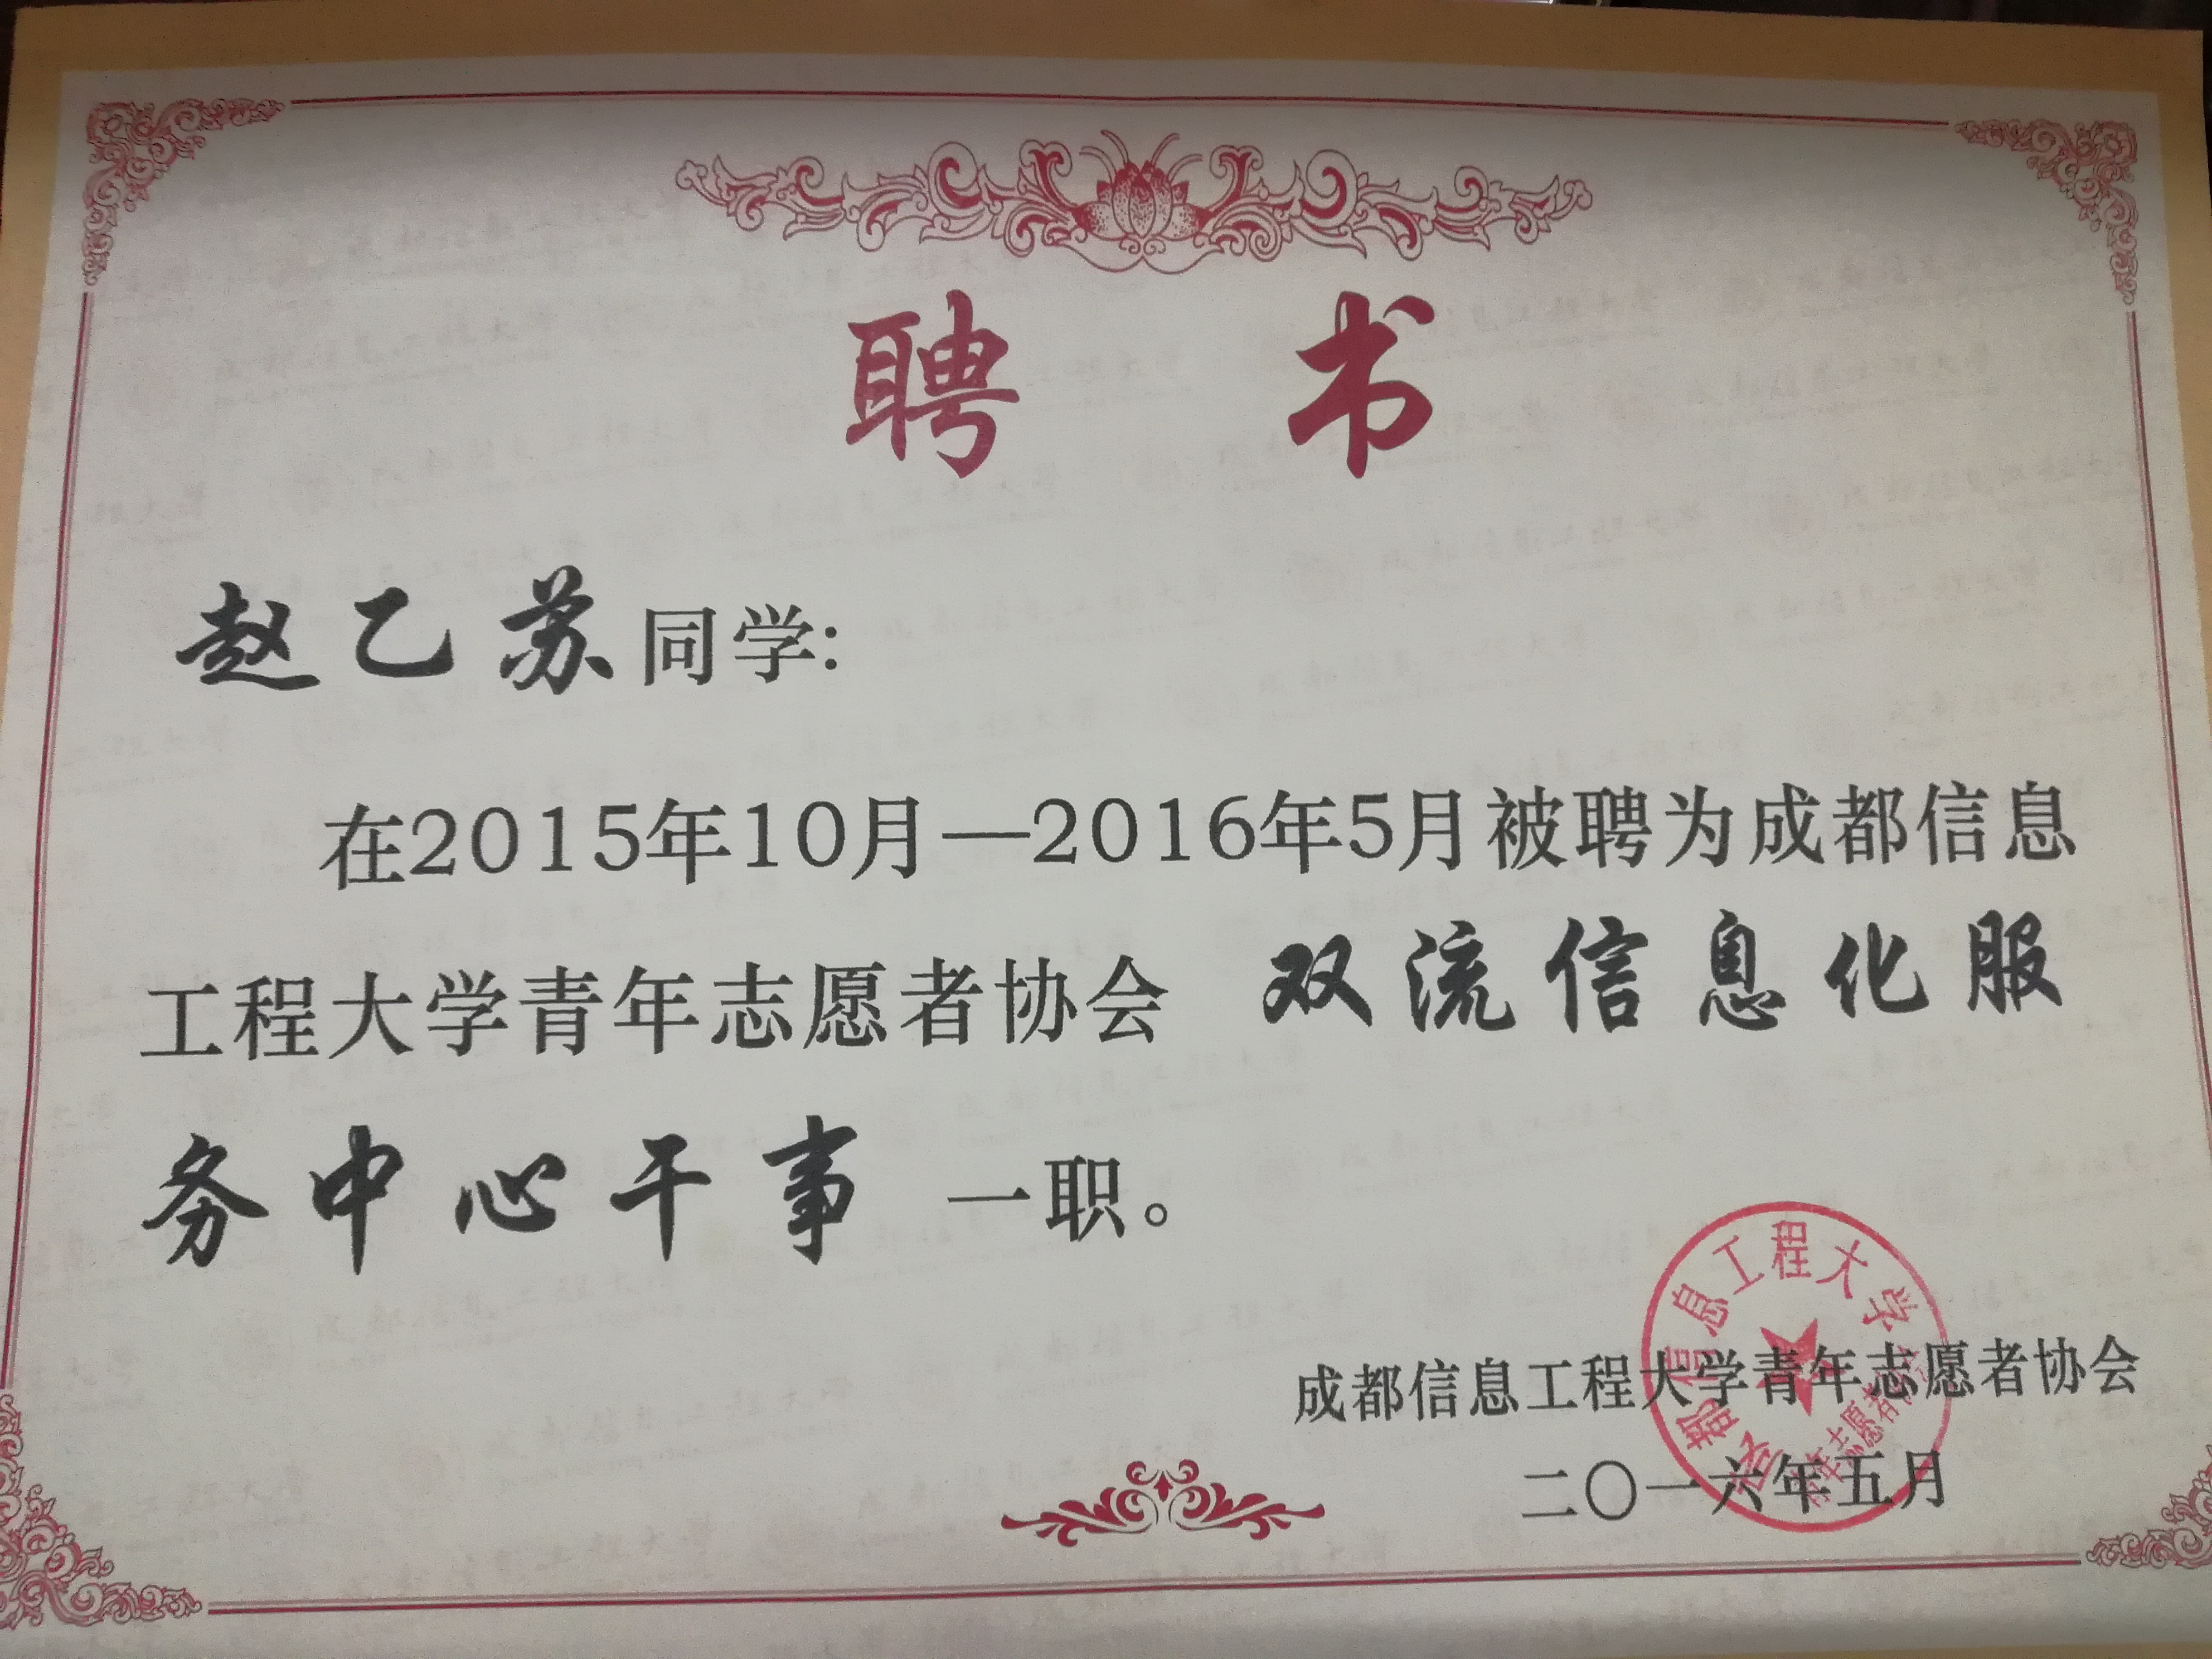 聘 书
赵乙苏同学:
在2015年10月—2016年5月被聘为成都信息
工程大学青年志愿者协会 双流信息化服
务中心干事 一职。
成都信息工程大学青年志愿者协会
二〇一六年五月
成都信息工程大学
青年志愿者